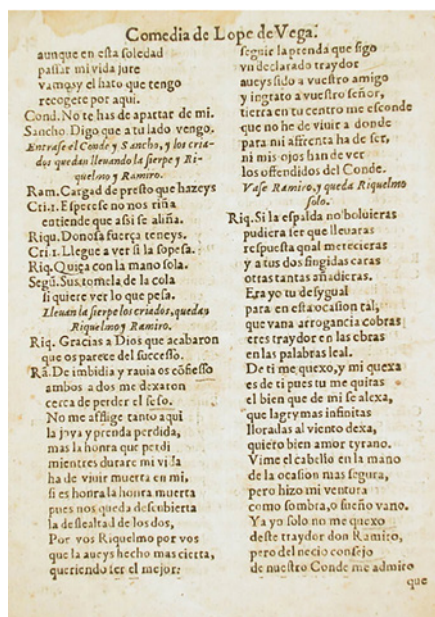 Comedia de Lope de Vega.
aunque en esta soledad
passar mi vida jure
vamos y el hato que tengo
recogere por aqui.
Cond. No te has de apartar de mi.
Sancho. Digo que a tu lado vengo.
Entrase el Conde y Sancho, y los cria-
dos quedan llevando la sierpe y Ri-
quelmo y Ramiro.
Ram. Cargad de presto que hazeys
Cri. 1. Esperese no nos riña
entiende que assi se aliña.
Riqu. Donosa fuerça teneys.
Cri. 1. Llegue a ver si la sopesa.
Riq. Quiça con la mano sola.
Segũ. Sus, tomela de la cola
si quiere ver lo que pesa.
Lleuan la sierpe los criados, quedan
Riquelmo y Ramiro.
Riq. Gracias a Dios que acabaron
que os parece del successo.
Rã. De imbidia y rauia os cõfiesso
ambos a dos me dexaron
cerca de perder el seso.
No me afflige tanto aqui
la joya y prenda perdida,
mas la honra que perdi
mientres durare mi vida
ha de viuir muerta en mi,
si es honra la honra muerta
pues nos queda descubierta
la deslealtad de los dos,
Por vos Riquelmo por vos
que la aueys hecho mas cierta,
queriendo ser el mejor:
seguir la prenda que sigo
vn declarado traydor
aueys sido a vuestro amigo
y ingrato a vuestro señor,
tierra en tu centro me esconde
que no he de viuir a donde
para mi affrenta ha de ser,
ni mis ojos han de ver
los offendidos del Conde.
Vase Ramiro, y queda Riquelmo
solo.
Riq. Si la espalda no boluieras
pudiera ser que lleuaras
respuesta qual merecieras
y a tus dos fingidas caras
otras tantas añadieras.
Era yo tu desygual
para en esta ocasion tal,
que vana arrogancia cobras
eres traydor en las obras
en las palabras leal.
De ti me quexo, y mi quexa
es de ti pues tu me quitas
el bien que de mi se alexa,
que lagrymas infinitas
lloradas al viento dexa,
quiero bien amor tyrano.
Vime el cabello en la mano
de la ocasion mas segura,
pero hizo mi ventura
como sombra, o sueño vano.
Ya yo solo no me quexo
deste traydor don Ramiro,
pero del necio consejo
de nuestro Conde me admiro
que